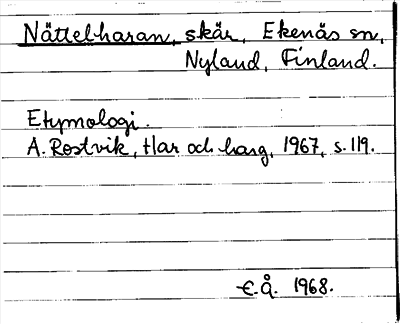 Nättelharan, skär, Ekenäs sn,
Nyland, Finland.
Etymologi.
A. Rostvik, Har och harg, 1967, s. 119.
€.Å. 1968.